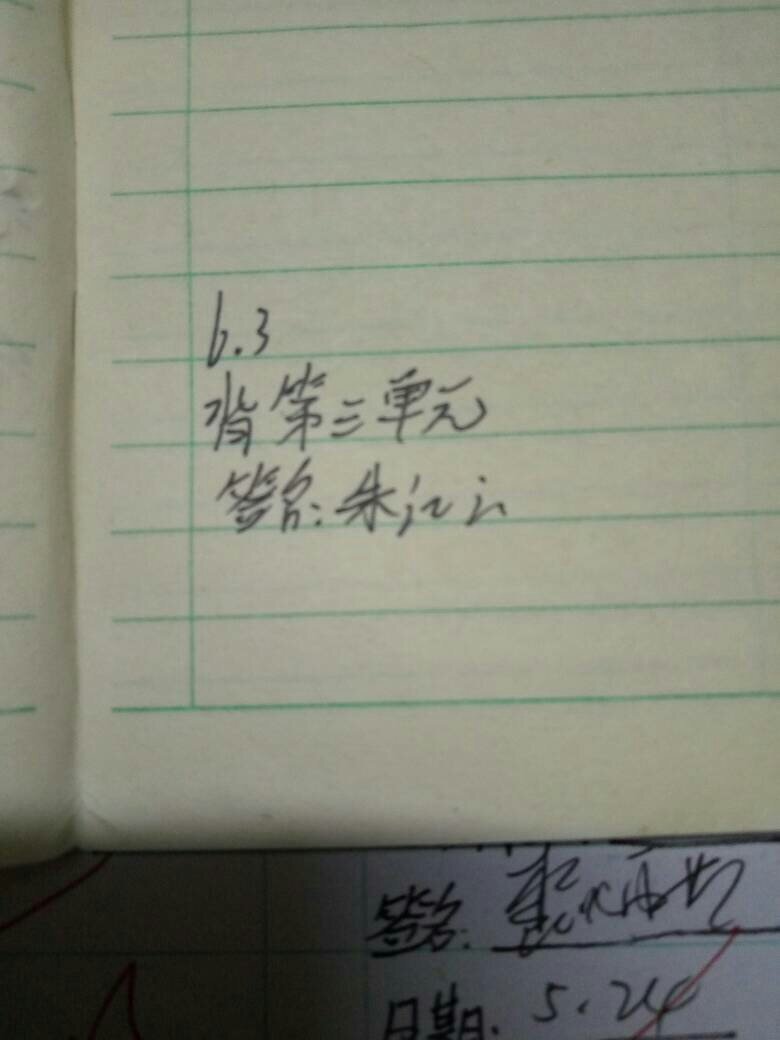 6.3
背第三单元
签名:朱江
签名:
日期:5.24